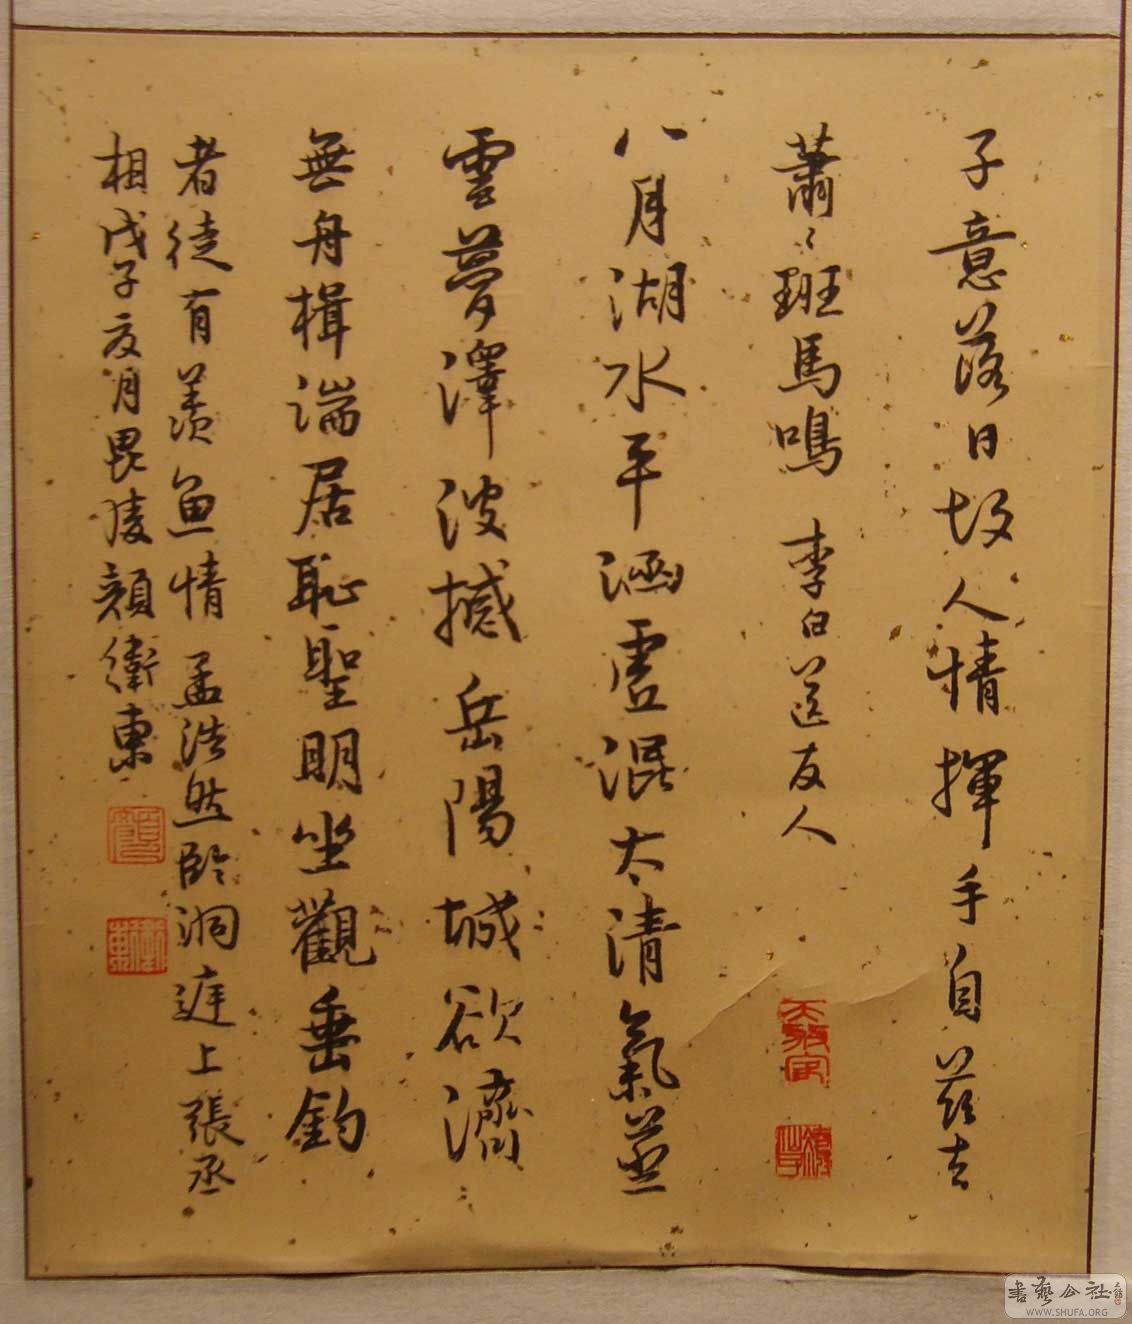 子意落日故人情揮手自茲去
蕭〻班馬鳴 李白送友人
八月湖水平涵虛混太清氣蒸
雲夢澤波撼岳陽城欲濟
無舟楫端居恥聖明坐觀垂釣
者徒有羨魚情 孟浩然臨洞庭上張丞
相戊子夏月毘陵顏衛東
衛東
書藝公社
WWW.SHUFA.ORG